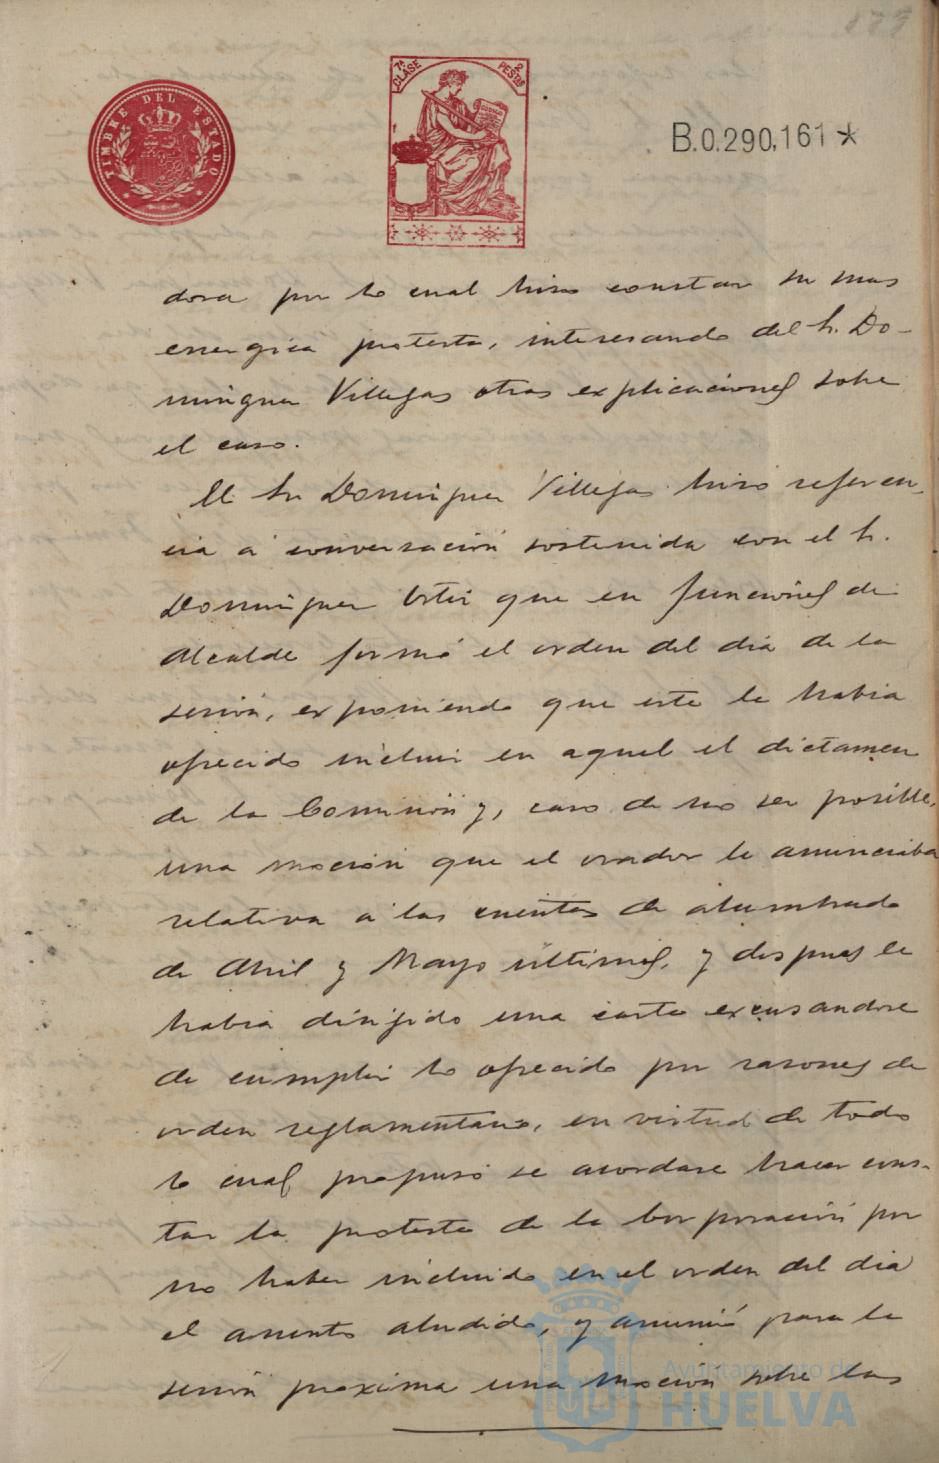 TIMBRE DEL ESTADO
7ª CLASE
2 PESETAS
B.0.290,161*
dora por lo cual hizo constar su mas
energica protesta, interesando del Sr. Do-
minguez Villegas otras explicaciones sobre
el caso.
El Sr Dominguez Villegas hizo referen-
cia a conversación sostenida con el Sr.
Dominguez Ortiz que en funciones de
Alcalde formó el orden del dia de la
sesión, exponiendo que este le habia
ofrecido incluir en aquel el dictamen
de la Comisión y, caso de no ser posible,
una moción que el orador le anunciaba
relativa á las cuentas de alumbrado
de Abril y Mayo últimos, y despues le
habia dirigido una carta excusandose
de cumplir lo ofrecido por razones de
orden reglamentario, en virtud de todo
lo cual propuso se acordase hacer cons-
tar la protesta de la Corporación por
no haber incluido en el orden del dia
el asunto aludido, y anunció para la
sesión proxima una moción sobre las
Ayuntamiento de
HUELVA